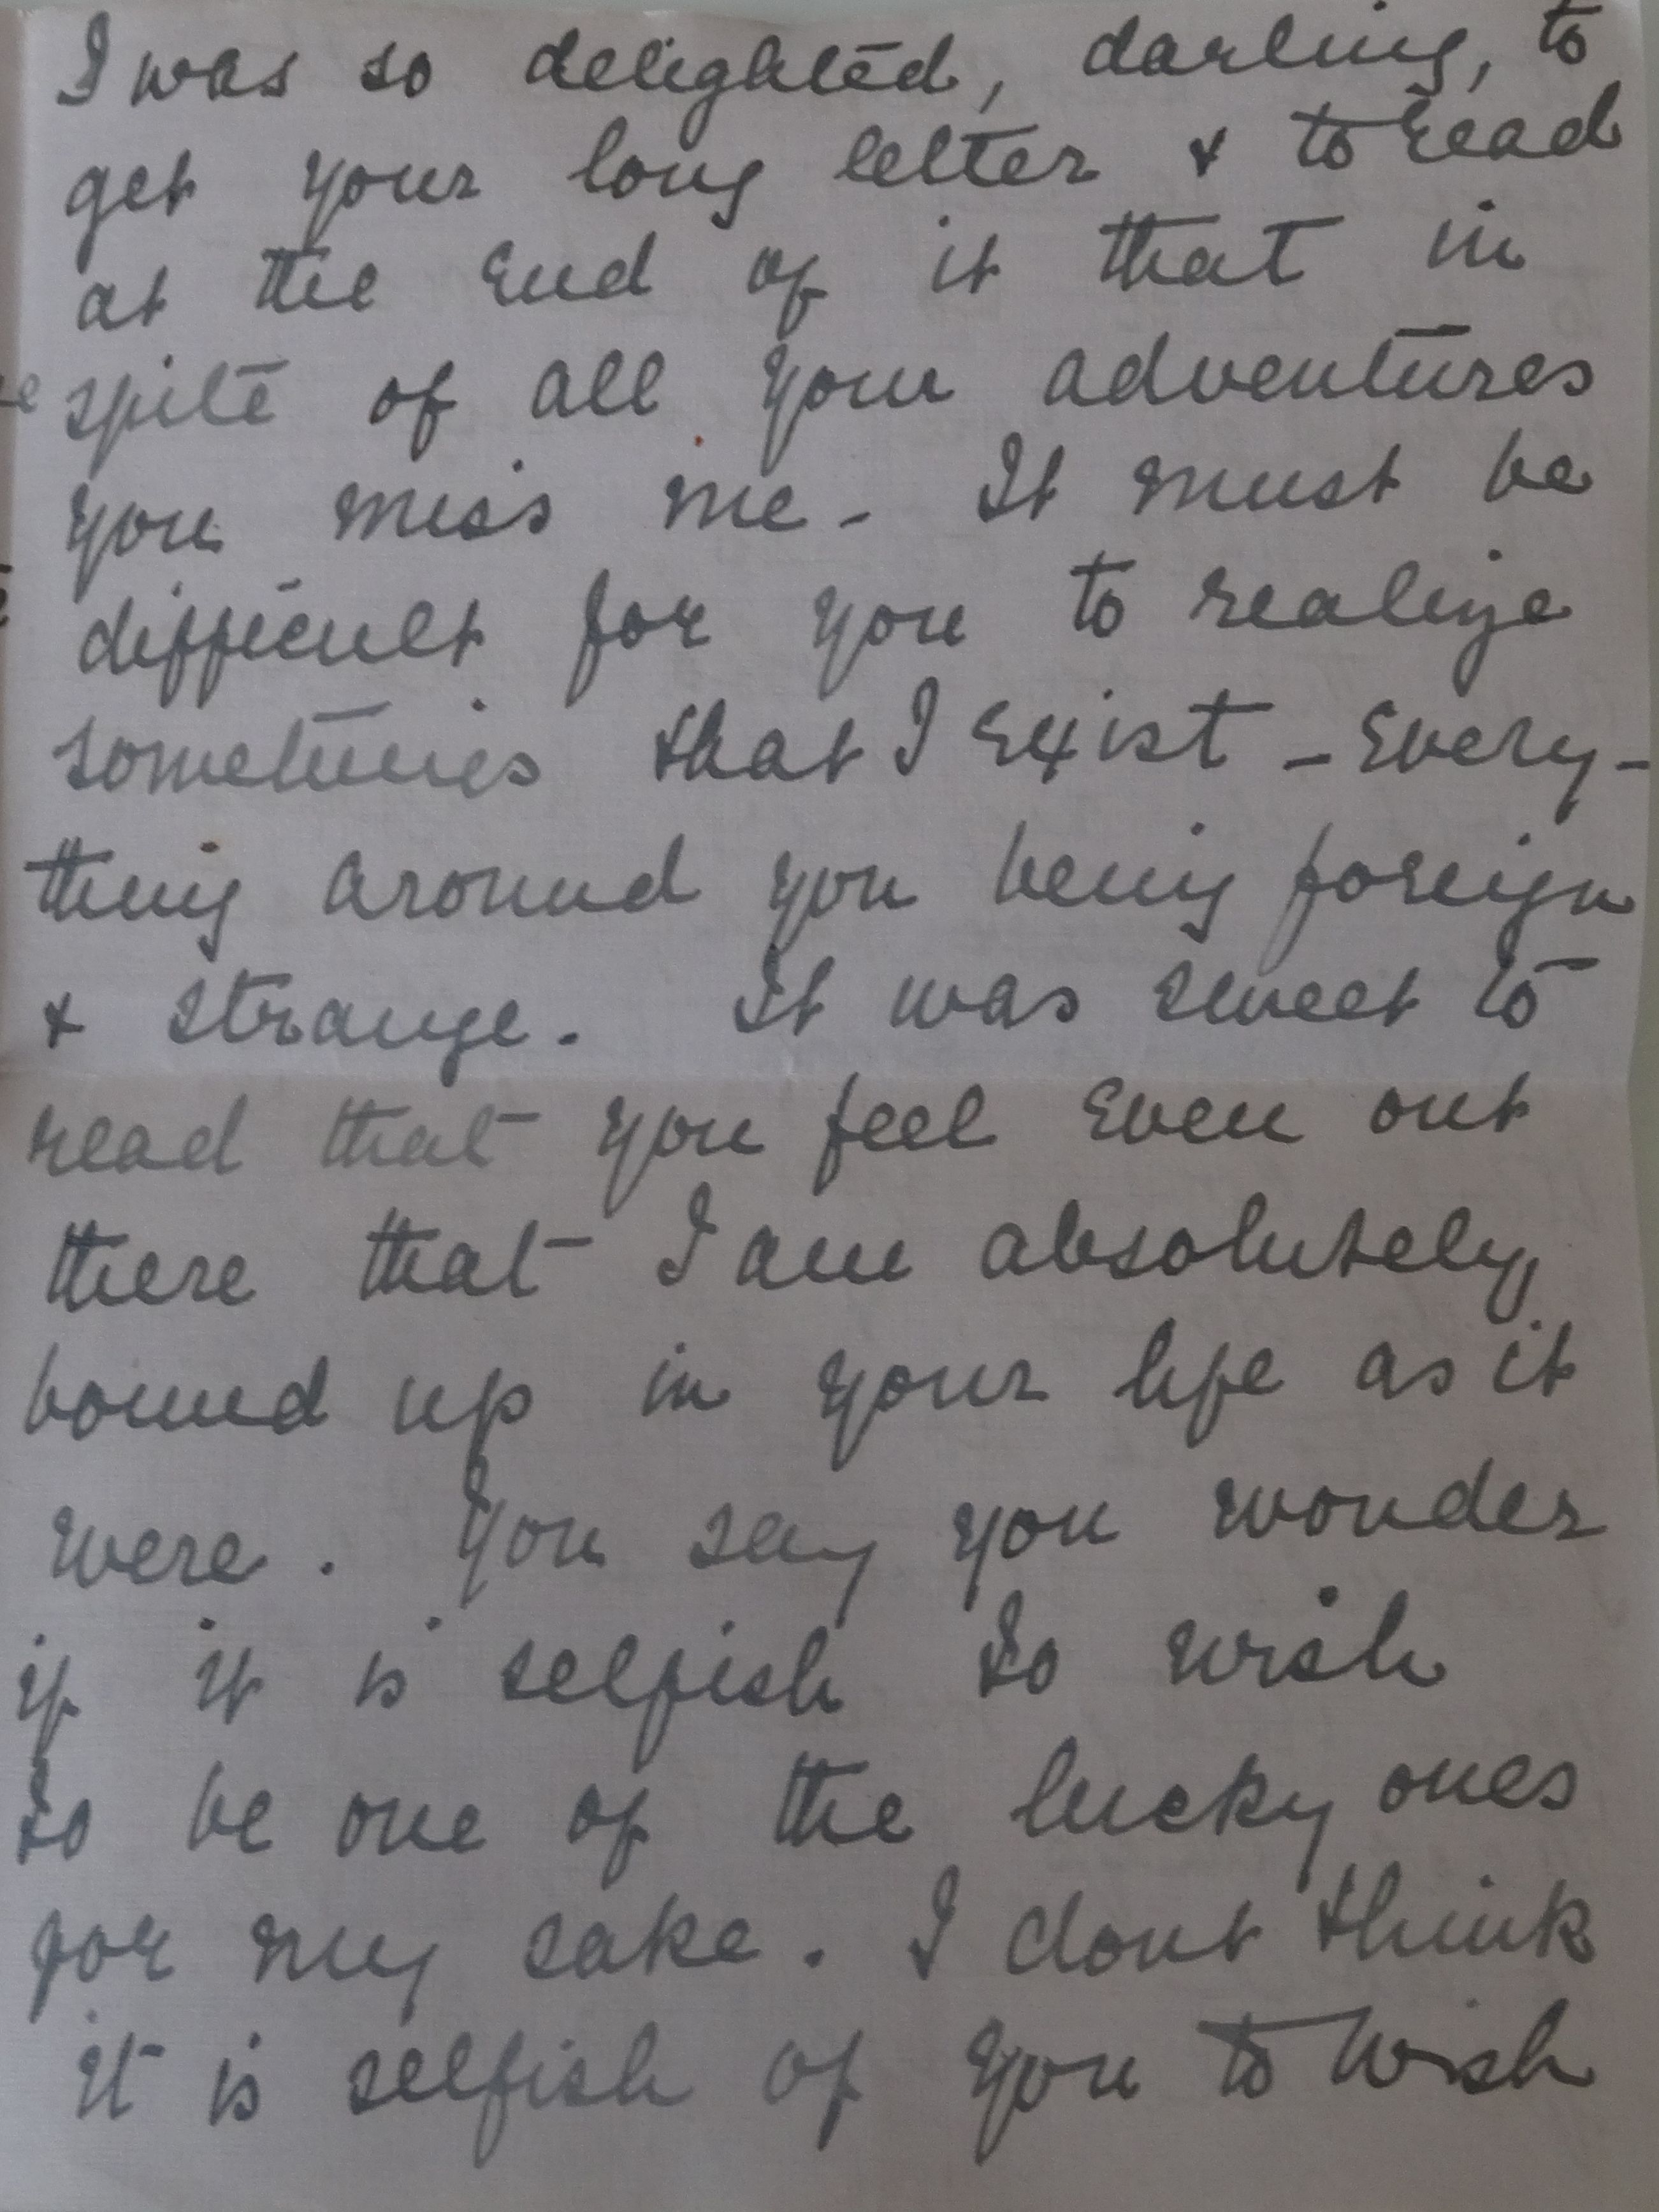 I was so delighted, darling, to
get your long letter & to read
at the end of it that in
spite of all your adventures
you miss me - It must be
difficult for you to realize
sometimes that I exist - Every-
thing around you being foreign
& strange. It was sweet to
read that you feel even out
there that I am absolutely
bound up in your life as it
were. You say you wonder
if it is selfish to wish
to be one of the lucky ones
for my sake. I dont think
it is selfish of you to wish